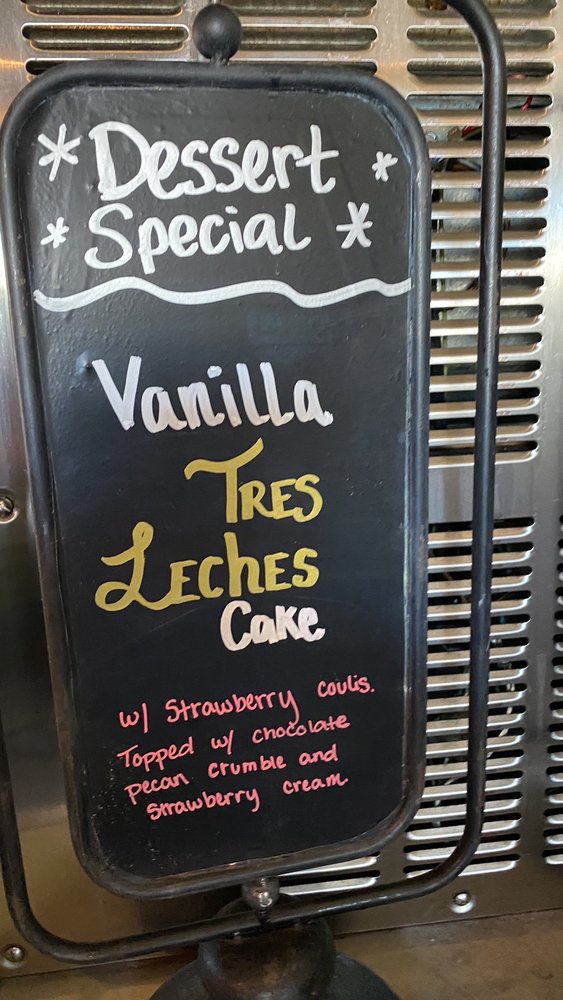 * Dessert *
* Special *
Vanilla
Tres
Leches
Cake
w/ Strawberry coulis.
Topped w/ chocolate
pecan crumble and
strawberry cream.